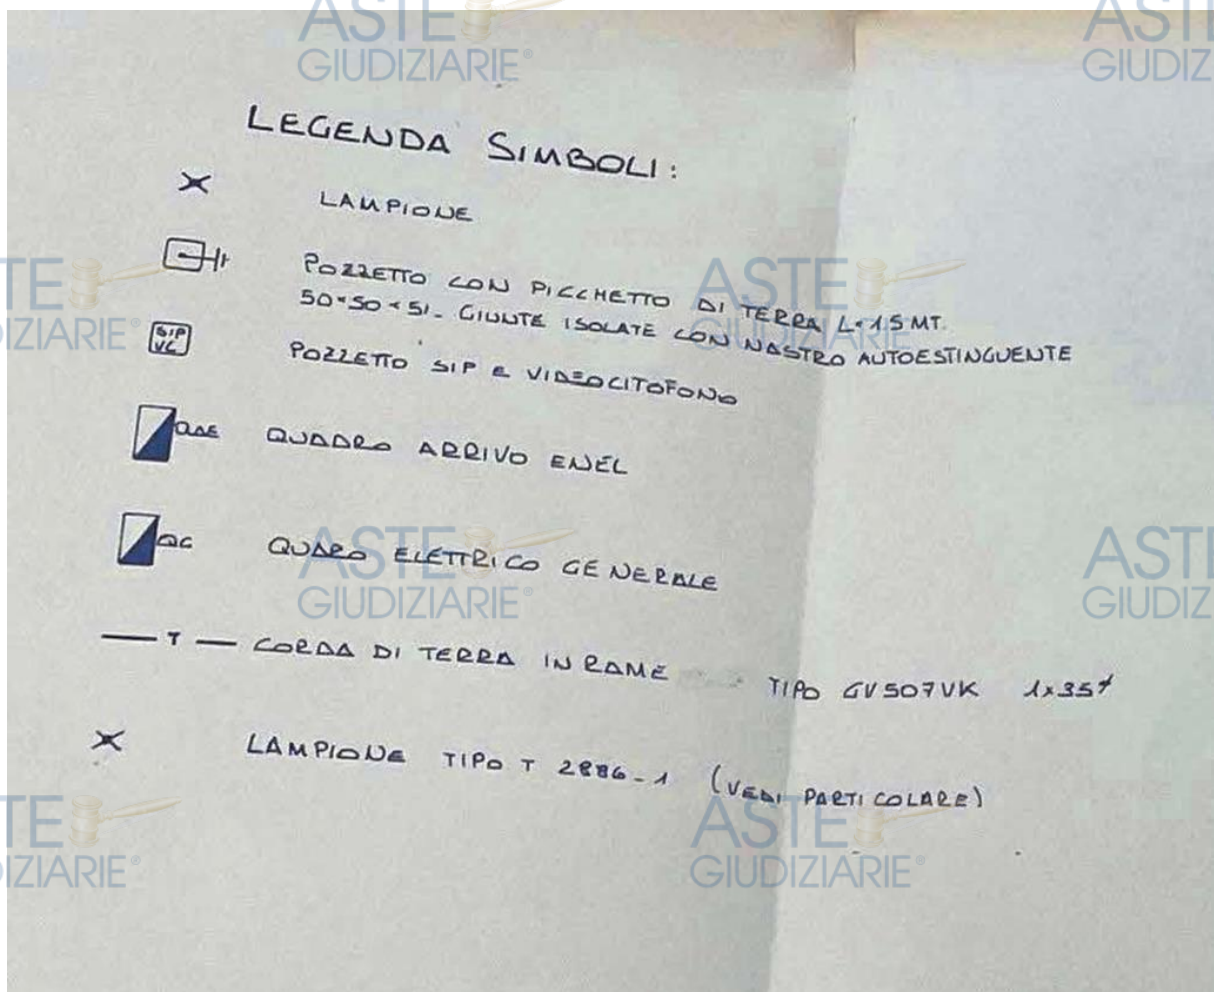 ASTE GIUDIZIARIE®
LEGENDA SIMBOLI:
LAMPIONE
POZZETTO CON PICCHETTO DI TERRA L=1.5 MT.
50×50×51. GIUNTE ISOLATE CON NASTRO AUTOESTINGUENTE
SIP
VC
POZZETTO SIP E VIDEOCITOFONO
QAE QUADRO ARRIVO ENEL
QG QUADRO ELETTRICO GENERALE
T CORDA DI TERRA IN RAME TIPO GV507VK 1×35
LAMPIONE TIPO T 2886-1 (VEDI PARTICOLARE)